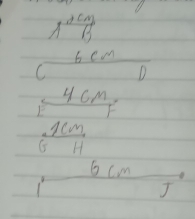 2cm
A B
6 cm
C D
4 cm
E F
2cm
G H
6 cm
I J